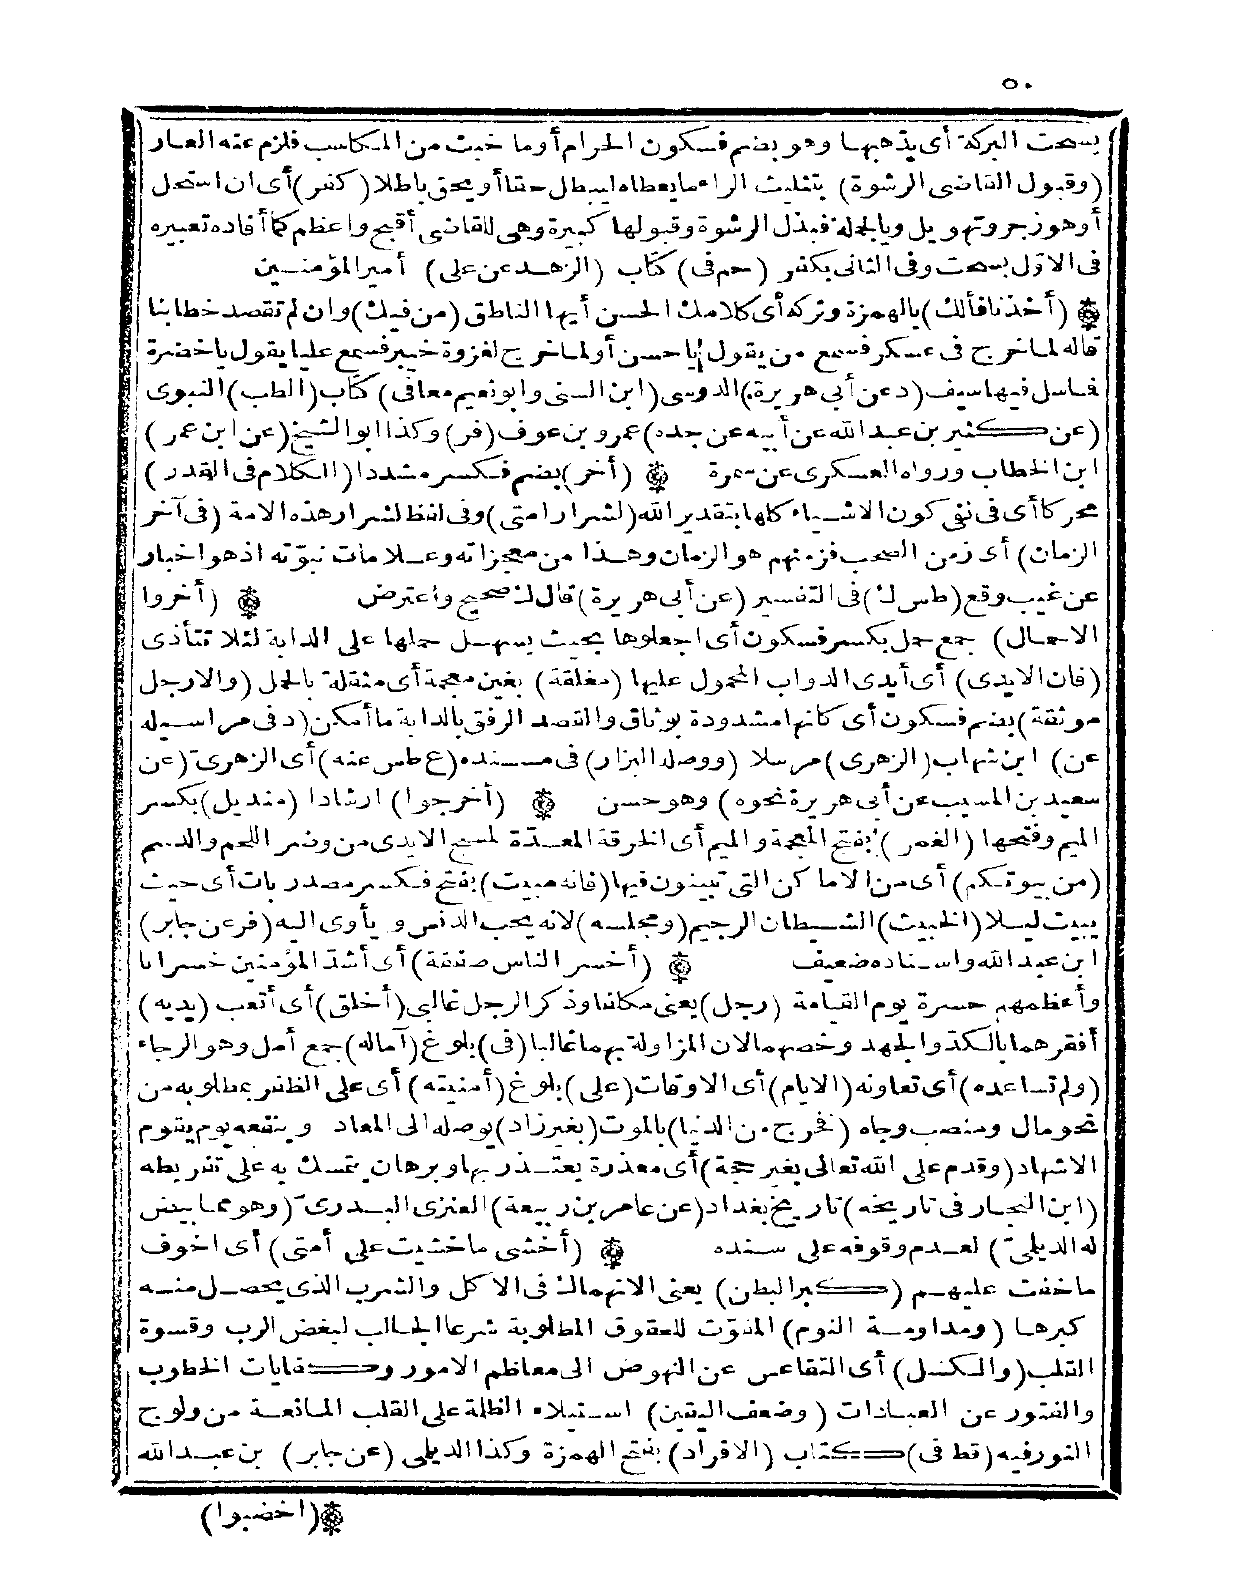 ٥٠
يسحت البركة أى يذهبها وهو بضم فسكون الحرام أو ما خبث من المكاسب فلزم عنه العار
(وقبول القاضى الرشوة) بتثليث الراء ما يعطاه ليبطل حقا أو يحق باطلا (كفر) أى ان استحل
أو هو زجر وتهويل وبالجملة فبذل الرشوة وقبولها كبيرة وهى للقاضى أقبح وأعظم كما أفاده تعبيره
فى الاوّل بسحت وفى الثانى بكفر (حم فى) كتاب (الزهد عن على) أمير المؤمنين
(أخذنا فألك) بالهمزة وتركه أى كلامك الحسن أيها الناطق (من فيك) وان لم تقصد خطابنا
قاله لما خرج فى عسكر فسمع من يقول يا حسن أو لما خرج لغزوة خيبر فسمع عليا يقول يا خضرة
فما سل فيها سيف (د عن أبى هريرة) الدوسى (ابن السنى وابو نعيم معافى) كتاب (الطب) النبوى
(عن كثير بن عبد الله عن أبيه عن جده) عمرو بن عوف (فر) وكذا ابو الشيخ (عن ابن عمر)
ابن الخطاب ورواه العسكرى عن سمرة (أخر) بضم فكسر مشددا (الكلام فى القدر)
محركا أى فى نفى كون الاشياء كلها بتقدير الله (لشرار امتى) وفى لفظ لشرار هذه الامة (فى آخر
الزمان) أى زمن الصحب فزمنهم هو الزمان وهذا من معجزاته وعلامات نبوّته اذ هو اخبار
عن غيب وقع (طس ك) فى التفسير (عن أبى هريرة) قال ك صحيح واعترض (أخروا
الاحمال) جمع حمل بكسر فسكون أى اجعلوها بحيث يسهل حملها على الدابة لئلا تتأذى
(فان الايدى) أى أيدى الدواب المحمول عليها (مغلقة) بغين معجمة أى مثقلة بالحمل (والارجل
موثقة) بضم فسكون أى كأنها مشدودة بوثاق والقصد الرفق بالدابة ما أمكن (د فى مراسيله
عن) ابن شهاب (الزهرى) مرسلا (ووصله البزار) فى مسنده (ع طس عنه) أى الزهرى (عن
سعيد بن المسيب عن أبى هريرة نحوه) وهو حسن (أخرجوا) ارشادا (منديل) بكسر
الميم وفتحها (الغمر) بفتح المعجمة والميم أى الخرقة المعدّة لمسح الايدى من وضر اللحم والدسم
(من بيوتكم) أى من الاماكن التى تبيتون فيها (فانه مبيت) بفتح فكسر مصدر بات أى حيث
يبيت ليلا (الخبيث) الشيطان الرجيم (ومجلسه) لانه يحب الدنس و يأوى اليه (فر عن جابر)
ابن عبد الله واسناده ضعيف (أخسر الناس صفقة) أى أشدّ المؤمنين خسرانا
وأعظمهم حسرة يوم القيامة (رجل) يعنى مكلفا وذكر الرجل غالبى (أخلق) أى أتعب (يديه)
أفقرهما بالكد والجهد وخصهما لان المزاولة بهما غالبا (فى) بلوغ (آماله) جمع أمل وهو الرجاء
(ولم تساعده) أى تعاونه (الايام) أى الاوقات (على) بلوغ (أمنيته) أى على الظفر بمطلوبه من
نحو مال ومنصب وجاه (فخرج من الدنيا) بالموت (بغير زاد) يوصله الى المعاد وينفعه يوم يقوم
الاشهاد (وقدم على الله تعالى بغير حجة) أى معذرة يعتذر بها وبرهان يتمسك به على تفريطه
(ابن النجار فى تاريخه) تاريخ بغداد (عن عامر بن ربيعة) العنزى البدرى (وهو مما بيض
له الديلمى) لعدم وقوفه على سنده (أخشى ما خشيت على أمتى) أى اخوف
ما خفت عليهم (كبر البطن) يعنى الانهماك فى الاكل والشرب الذى يحصل منه
كبرها (ومداومة النوم) المفوّت للحقوق المطلوبة شرعا الجالب لبغض الرب وقسوة
القلب (والكسل) أى التقاعس عن النهوض الى معاظم الامور وكفايات الخطوب
والفتور عن العبادات (وضعف اليقين) استيلاء الظلمة على القلب المانعة من ولوج
النور فيه (قط فى) كتاب (الافراد) بفتح الهمزة وكذا الديلمى (عن جابر) بن عبد الله
(اخضبوا)